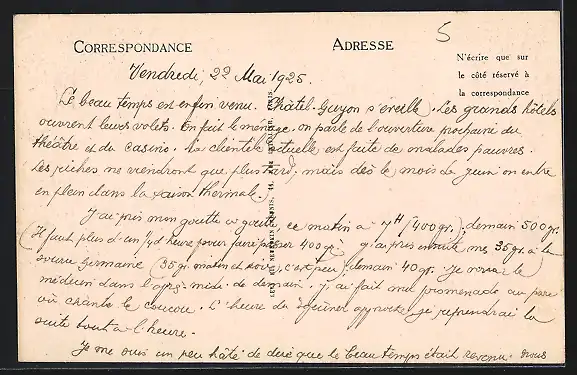 5
CORRESPONDANCE ADRESSE
N'écrire que sur
le côté réservé à
la correspondance
Vendredi, 22 Mai 1925.
Le beau temps est enfin venu. Châtel-Guyon s'éveille. Les grands hôtels
ouvrent leurs volets. On fait le ménage, on parle de l'ouverture prochaine du
théâtre et du casino. La clientèle actuelle est faite de malades pauvres.
Les riches ne viendront que plus tard, mais dès le mois de juin on entre
en plein dans la saison thermale.
J'ai pris mon goutte à goutte ce matin à 7H (400gr.), demain 500gr.
(Il faut plus d'un 1/4 d'heure pour faire passer 400gr.) J'ai pris ensuite mes 35gr. à la
source Germaine (35gr. matin et soir, c'est peu), demain 40gr. Je verrai le
médecin dans l'après-midi de demain. J'ai fait ma promenade au parc
où chante le coucou. L'heure du déjeuner approche, je reprendrai la
suite tout à l'heure.
Je me suis un peu hâté de dire que le beau temps était revenu. Nous